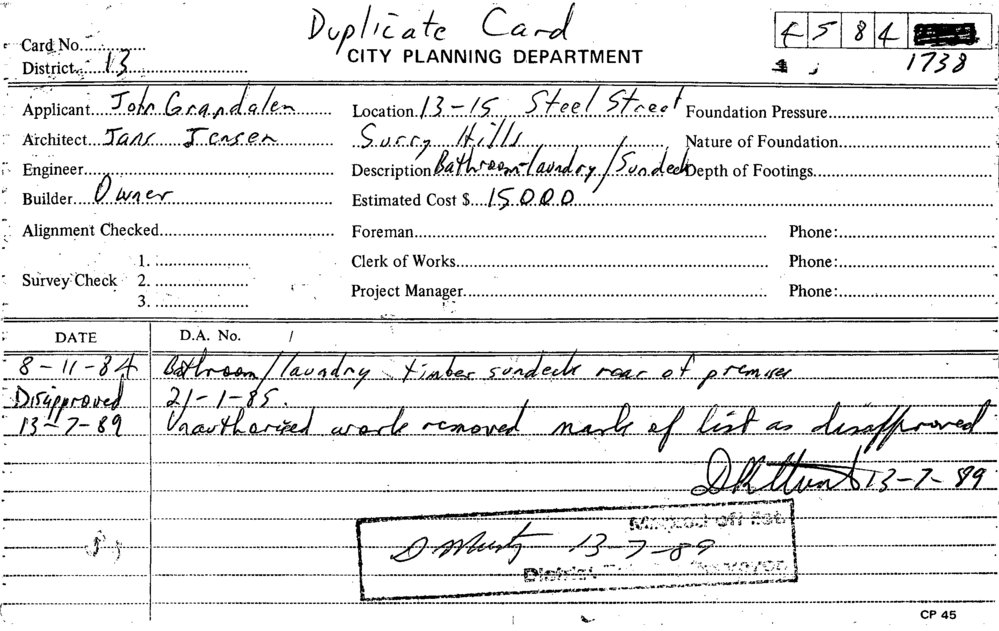 Duplicate Card
4 5 8 4
Card No.
CITY PLANNING DEPARTMENT
District 13
1738
Applicant John Grandalen Location 13-15 Steel Street Foundation Pressure
Architect Jans Jensen Surry Hills Nature of Foundation
Engineer Description Bathroom-laundry/Sundeck Depth of Footings
Builder Owner Estimated Cost $ 15000
Alignment Checked Foreman Phone:
1. Clerk of Works Phone:
Survey Check 2.
3. Project Manager Phone:
DATE D.A. No. /
8-11-84 Bathroom/laundry timber sundeck rear of premises
Disapproved 21-1-85.
13-7-89 Unauthorised work removed mark of list as disapproved
13-7-89
Marked off list
13-7-89
District Surveyor
CP 45